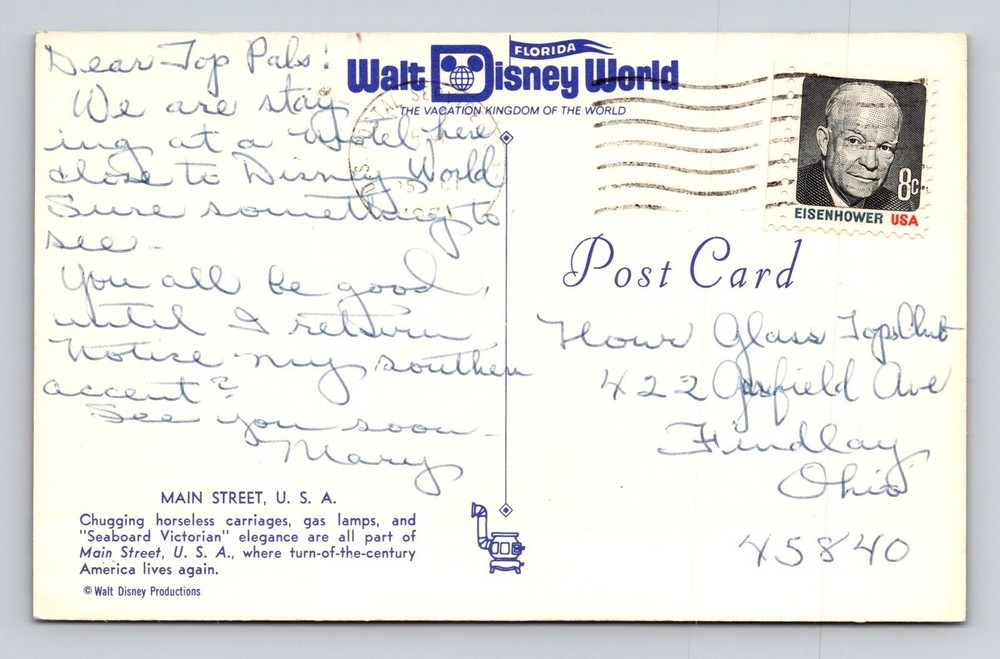 Dear Top Pals!
We are stay
ing at a Motel here
close to Disney World
Sure something to
see -
You all be good,
until I return
Notice my southern
accent?
See you soon -
Mary
MAIN STREET, U. S. A.
Chugging horseless carriages, gas lamps, and
"Seaboard Victorian" elegance are all part of
Main Street, U. S. A., where turn-of-the-century
America lives again.
© Walt Disney Productions
FLORIDA
Walt Disney World
THE VACATION KINGDOM OF THE WORLD
8c
EISENHOWER USA
Post Card
Hour Glass Tops Club
422 Garfield Ave
Findlay
Ohio
45840